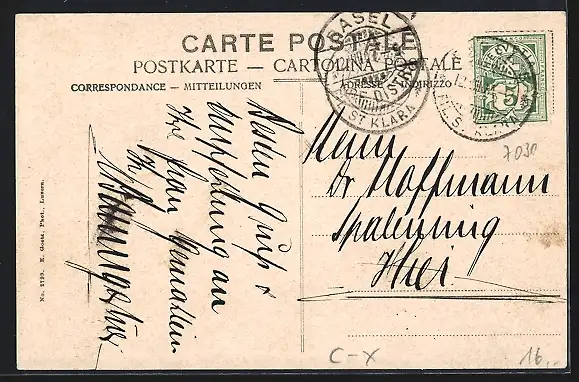 CARTE POSTALE
POSTKARTE — CARTOLINA POSTALE
CORRESPONDANCE — MITTEILUNGEN
ADRESSE — INDIRIZZO
BASEL
DISTR.
ST. KLARA
ST. KLARA
5
7030
Herrn
Dr Hoffmann
Spalenring
Hier
Besten Gruss &
Empfehlung an
Ihre Frau Gemahlin
Ihr
No. 2199. E. Goetz, Phot., Luzern.
C-X
16.-